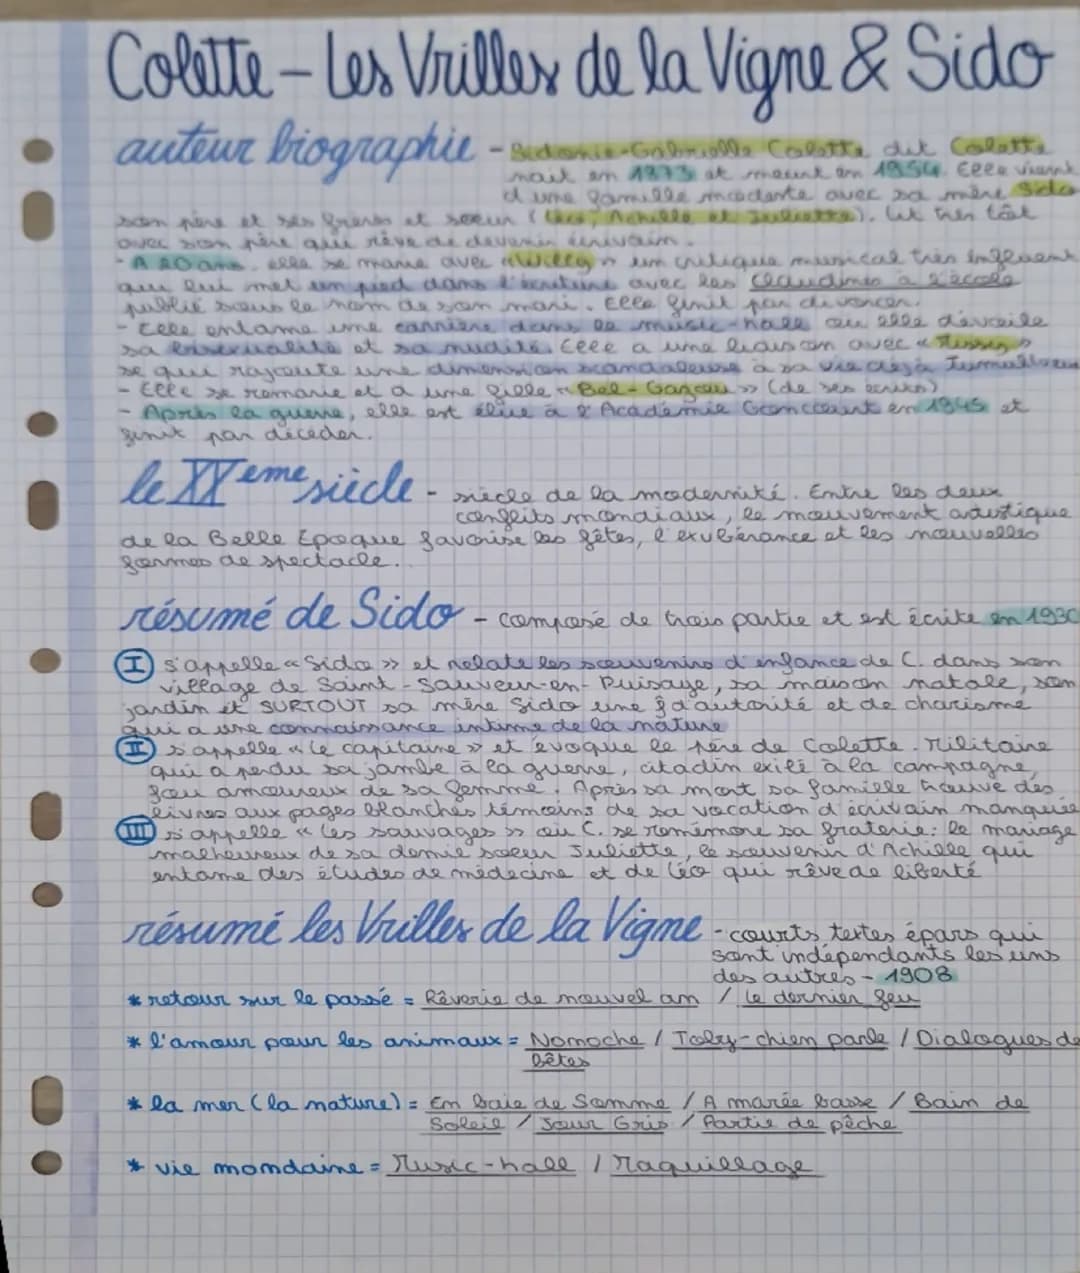 Colette - Les Vrilles de la Vigne & Sido
auteur biographie - Sidonie-Gabrielle Colette dit Colette
nait en 1873 et meurt en 1954. Elle vient
d'une famille modeste avec sa mère Sido
son père et ses frères et soeur (Léo, Achille et Juliette). Lit très tôt
avec son père qui rêve de devenir écrivain.
- A 20 ans, elle se marie avec "Willy" un critique musical très influent
qui lui met un pied dans l'écriture avec les Claudines à l'école
publié sous le nom de son mari. Elle finit par divorcer.
- Elle entame une carrière dans le music-hall où elle dévoile
sa bisexualité et sa nudité. Elle a une liaison avec « Missy »
se qui rajoute une dimension scandaleuse à sa vie déjà
- Elle se remarie et a une fille « Bel-Gazou » (de ses écrits)
- Après la guerre, elle est élue à l'Académie en 1945 et
finit par décéder.
le XXème siècle - siècle de la modernité. Entre les deux
conflits mondiaux, le mouvement artistique
de la Belle Epoque favorise les fêtes, l'exubérance et les nouvelles
formes de spectacle.
résumé de Sido - composé de trois partie et est écrite en 1930
I s'appelle « Sido » et relate les souvenirs d'enfance de C. dans son
village de Saint-Sauveur-en-Puisaye, sa maison natale, son
jardin et SURTOUT sa mère Sido une f d'autorité et de charisme
qui a une connaissance intime de la nature
II s'appelle « Le capitaine » et évoque le père de Colette. Militaire
qui a perdu sa jambe à la guerre, citadin exilé à la campagne,
fou amoureux de sa femme. Après sa mort sa famille trouve des
livres aux pages blanches témoins de sa vocation d'écrivain manquée
III s'appelle « Les sauvages » où C. se remémore sa fraterie: le mariage
malheureux de sa demie soeur Juliette, le souvenir d'Achille qui
entame des études de médecine et de Léo qui rêve de liberté
résumé les Vrilles de la Vigne - courts textes épars qui
sont indépendants les uns
des autres - 1908
* retour sur le passé = Rêverie de nouvel an / Le dernier feu
* l'amour pour les animaux = Nonoche / Toby-chien parle / Dialogues de
bêtes
* la mer (la nature) = En baie de Somme / A marée basse / Bain de
Soleil / Jour Gris / Partie de pêche
* vie mondaine = Music-hall / Maquillage